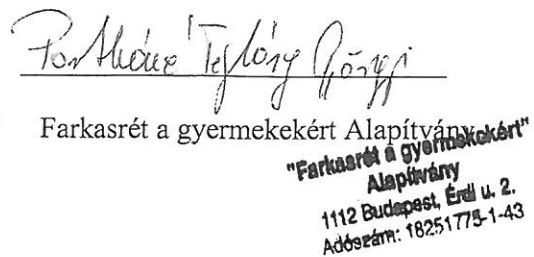 Györgyi
Farkasrét a gyermekekért Alapítvány
"Farkasrét a gyermekekért"
Alapítvány
1112 Budapest, Érdi u. 2.
Adószám: 18251775-1-43